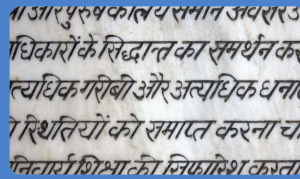 और पुरुष को लय समान अवसर
धिकारों के सिद्धान्त का समर्थन कर
त्यधिक गरीबी और अत्यधिक धना
स्थितियों को समाप्त करना च
निवार्य शिक्षा की सिफारिश करता